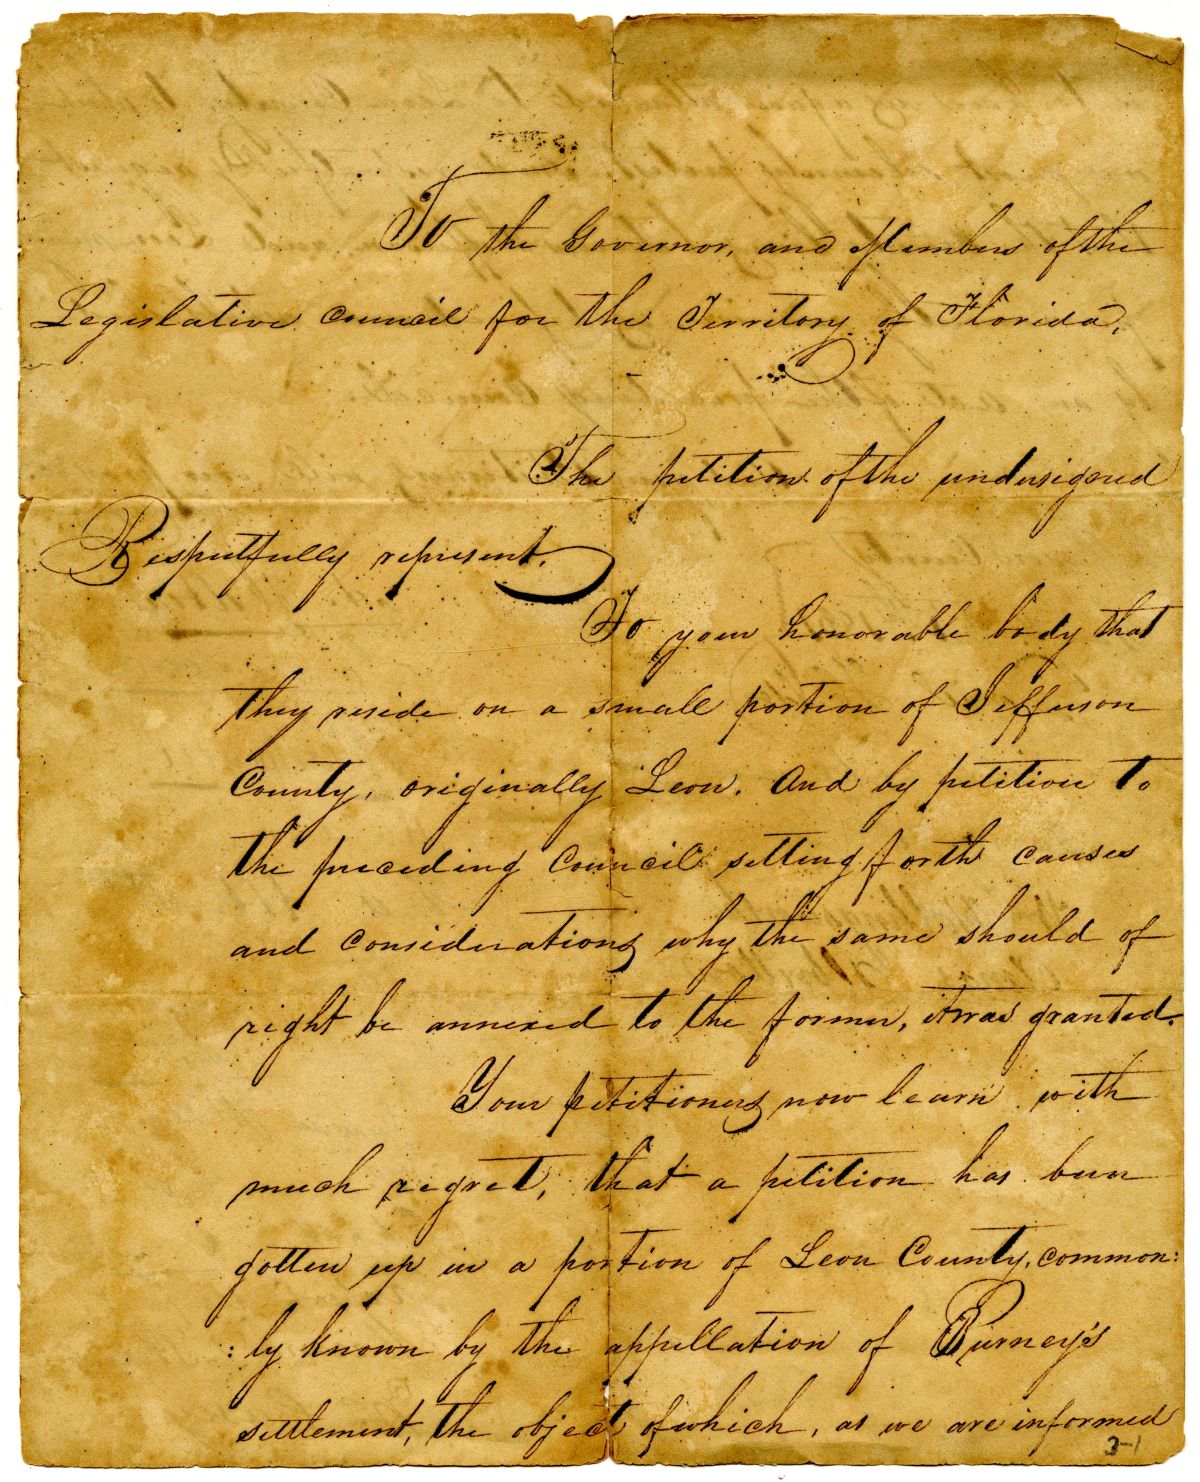 To the Governor, and Members of the
Legislative Council for the Territory of Florida,
The petition of the undersigned
Respectfully represent.
To your honorable body that
they reside on a small portion of Jefferson
County, originally Leon. And by petition to
the preceding Council setting forth causes
and considerations why the same should of
right be annexed to the former, it was granted.
Your petitioners now learn with
much regret, that a petition has been
gotten up in a portion of Leon County, common:
:ly known by the appellation of Burney's
settlement, the object of which, as we are informed
3-1